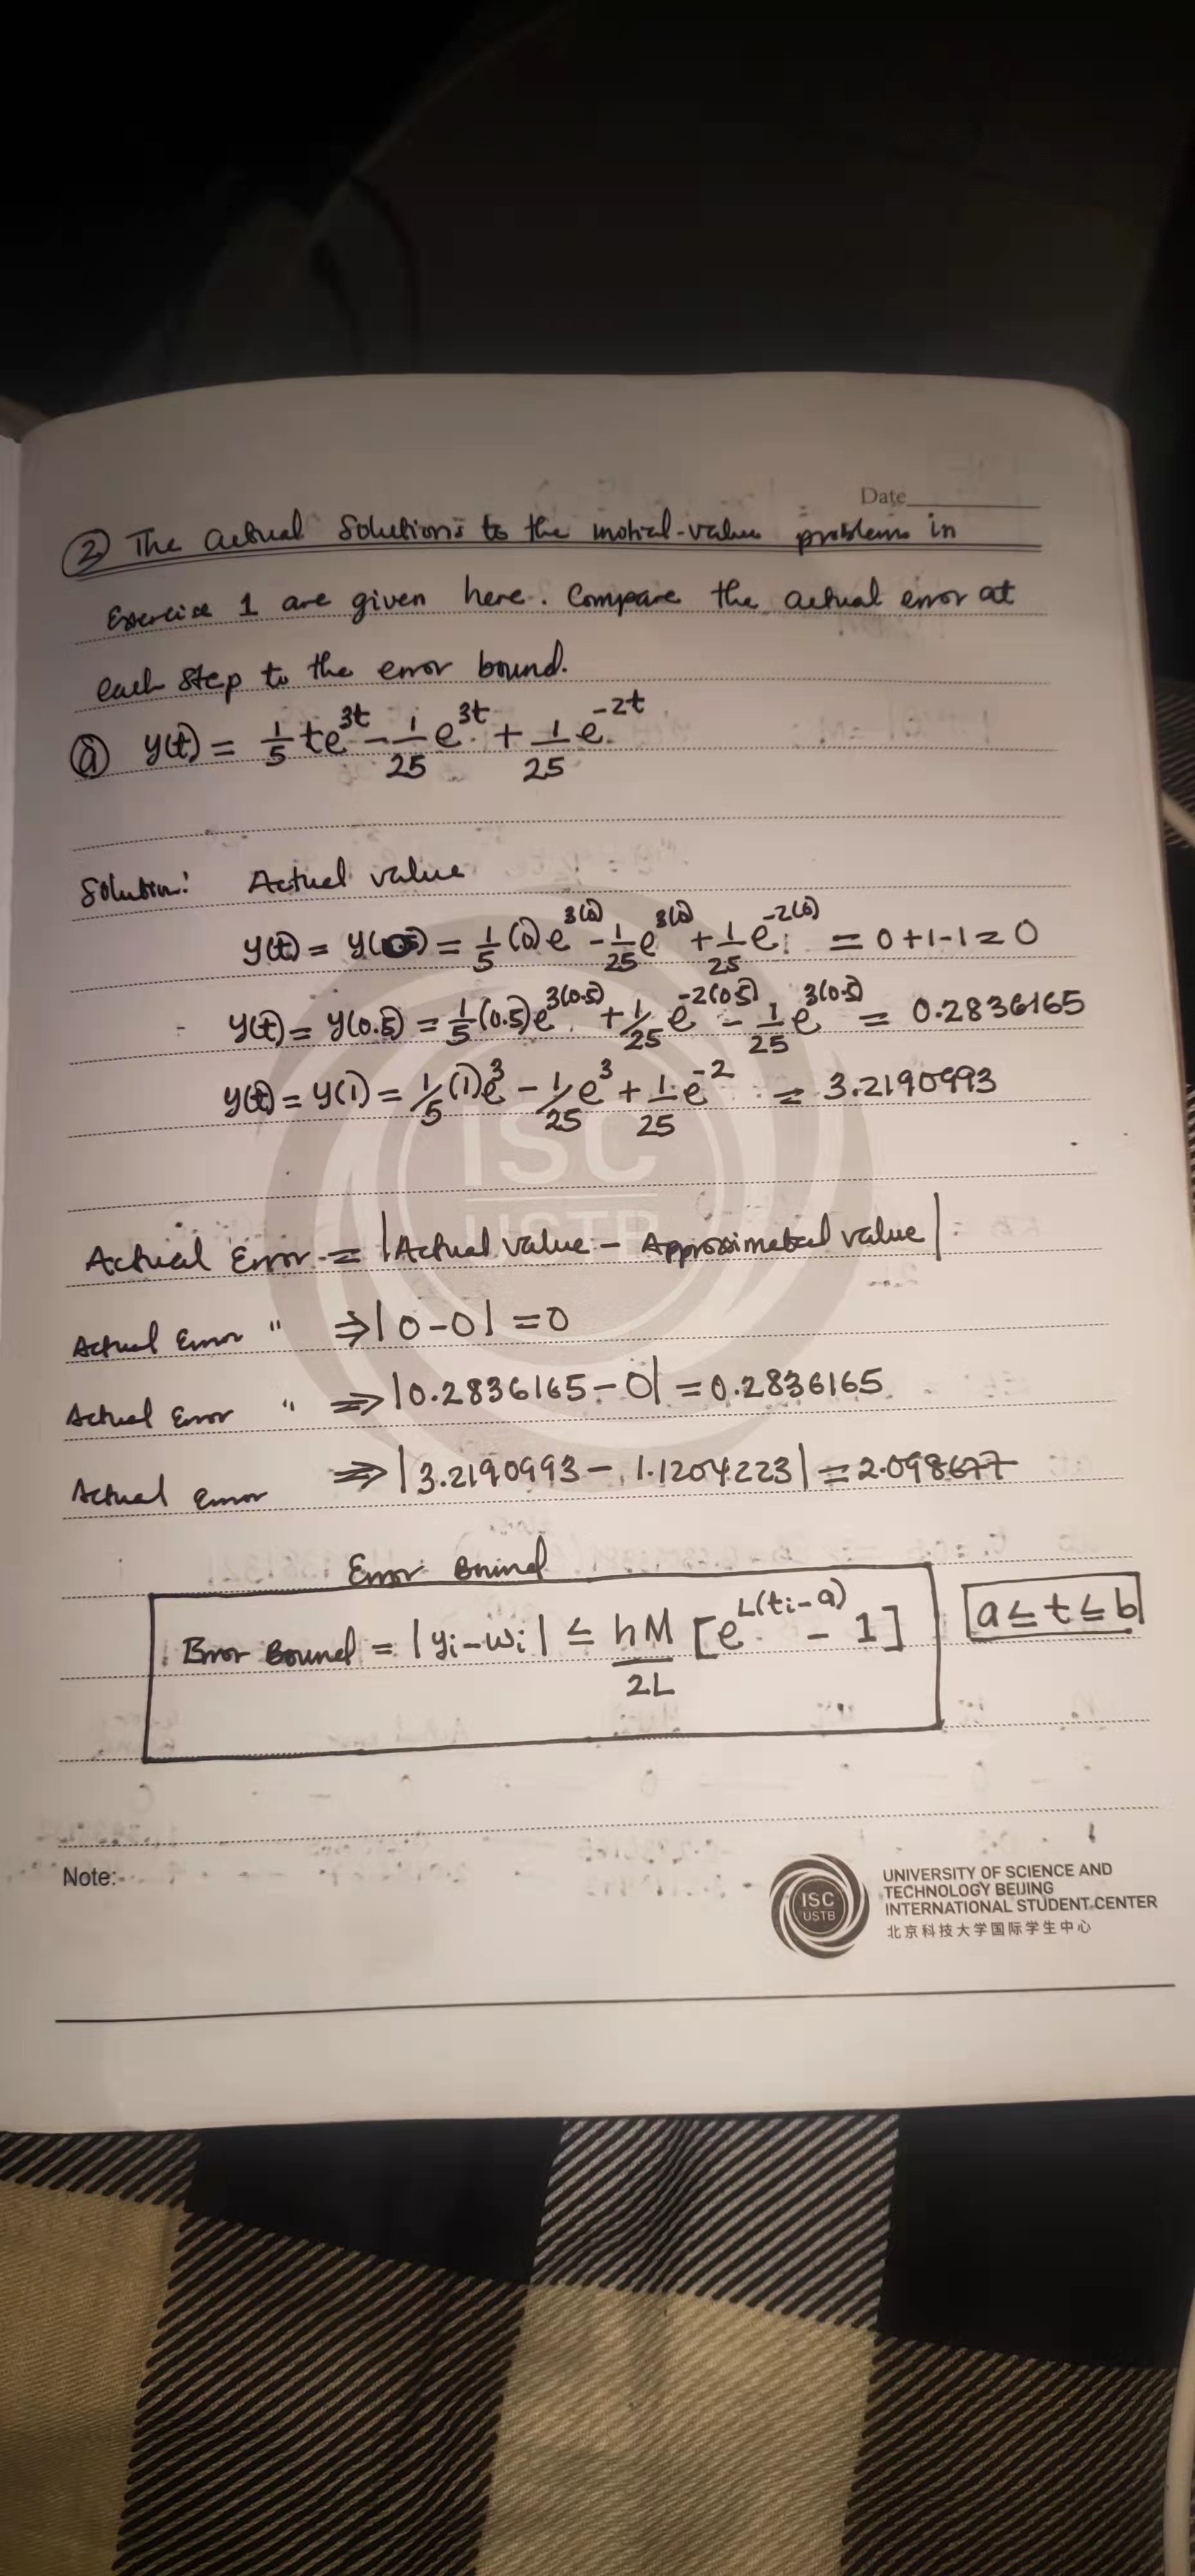 Date
② The actual solutions to the initial-value problems in
Exercise 1 are given here. Compare the actual error at
each step to the error bound.
ⓐ y(t) = 1/5 te^3t - 1/25 e^3t + 1/25 e^-2t
Solution: Actual value
y(t) = y(0) = 1/5 (0)e^3(0) - 1/25 e^3(0) + 1/25 e^-2(0) = 0+1-1=0
y(t) = y(0.5) = 1/5 (0.5)e^3(0.5) + 1/25 e^-2(0.5) - 1/25 e^3(0.5) = 0.2836165
y(t) = y(1) = 1/5 (1)e^3 - 1/25 e^3 + 1/25 e^-2 = 3.2190993
ISC
USTB
Actual Error = |Actual value - Approximated value|
Actual Error " ⇒ |0-0| = 0
Actual Error " ⇒ |0.2836165-0| = 0.2836165
Actual error ⇒ |3.2190993 - 1.1204223| = 2.098677
Error Bound
Error Bound = |yi-wi| ≤ hM/2L [e^L(ti-a) - 1] a≤t≤b
Note:
ISC
USTB
UNIVERSITY OF SCIENCE AND
TECHNOLOGY BEIJING
INTERNATIONAL STUDENT CENTER
北京科技大学国际学生中心